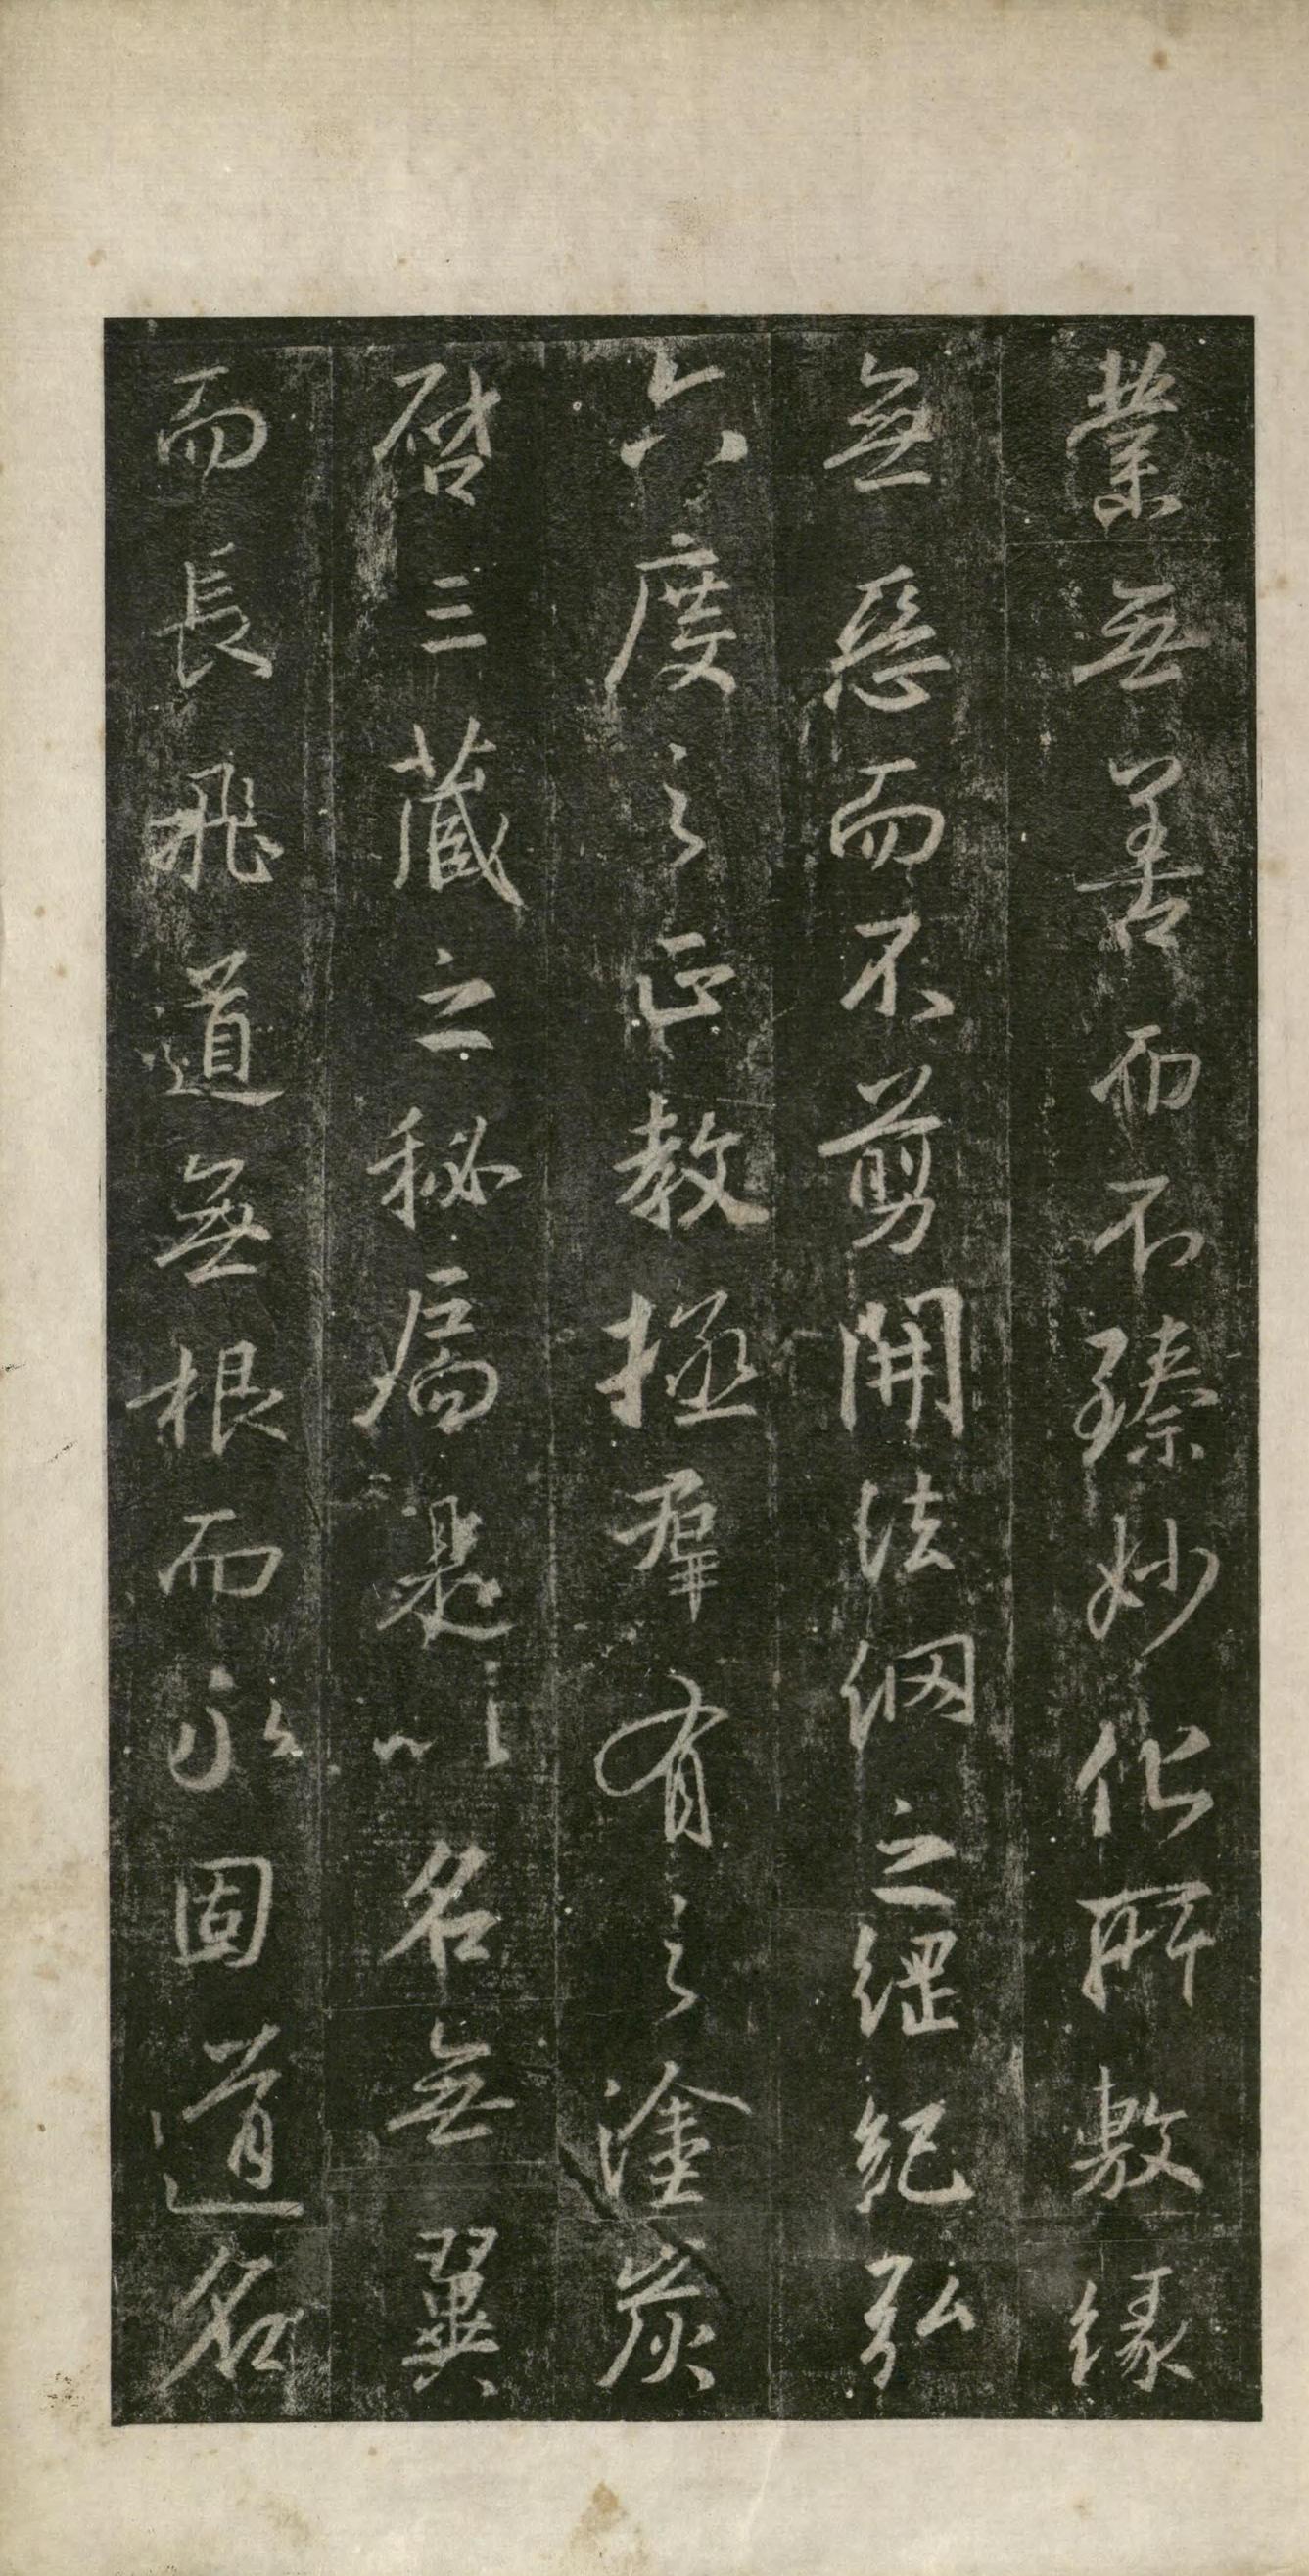 業無善而不臻妙化所敷緣
無惡而不剪開法網之綱紀弘
六度之正教拯群有之塗炭
啓三藏之秘扃是以名無翼
而長飛道無根而永固道名